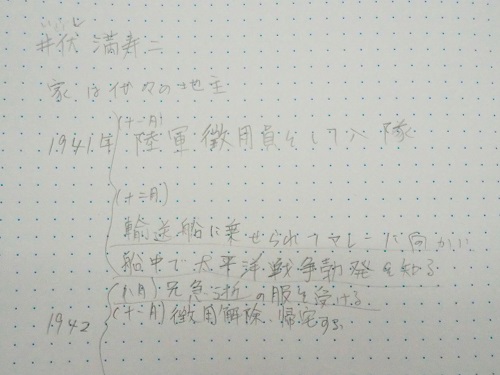 いぶせ
井伏 満寿二
家は代々の地主
1941年 (十一月) 陸軍徴用員として入隊
(十二月)
輸送船に乗せられてマレーに向かい
船中で太平洋戦争勃発を知る
(八月) 兄急逝の服を受ける
1942 (十一月) 徴用解除 帰宅する